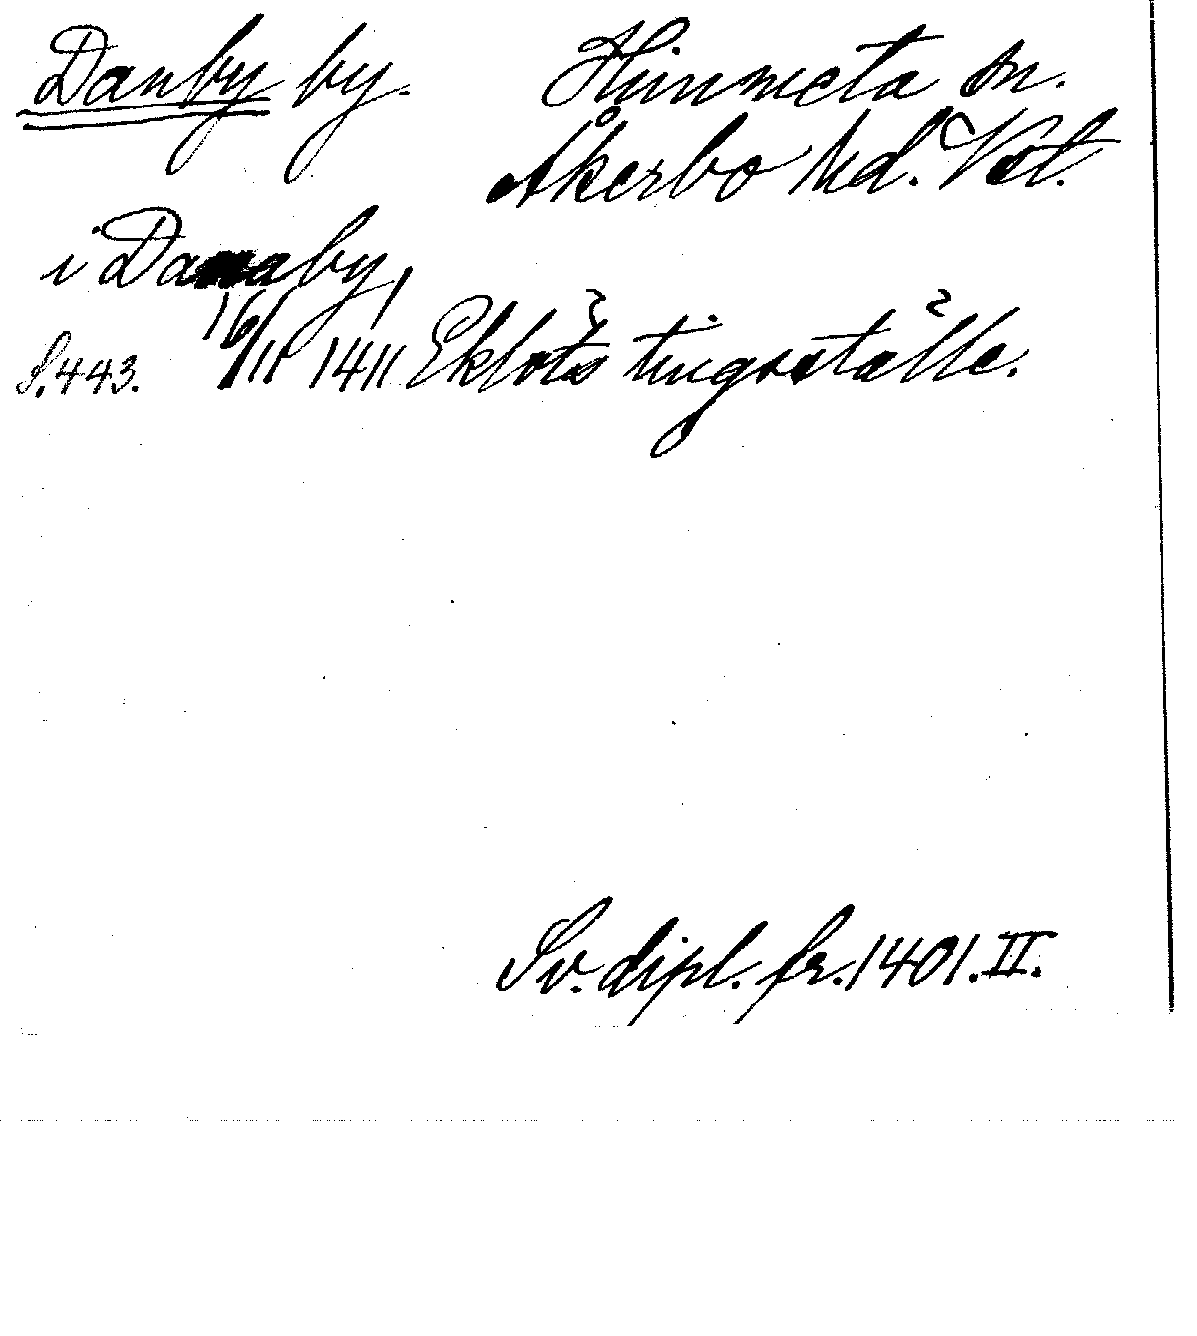 Danby by. Himmeta sn.
Åkerbo hd. Vstl.
i Danaby,
S. 443. 16/11 1411 Eklöts tingställe.
Sv. dipl. fr. 1401. II.